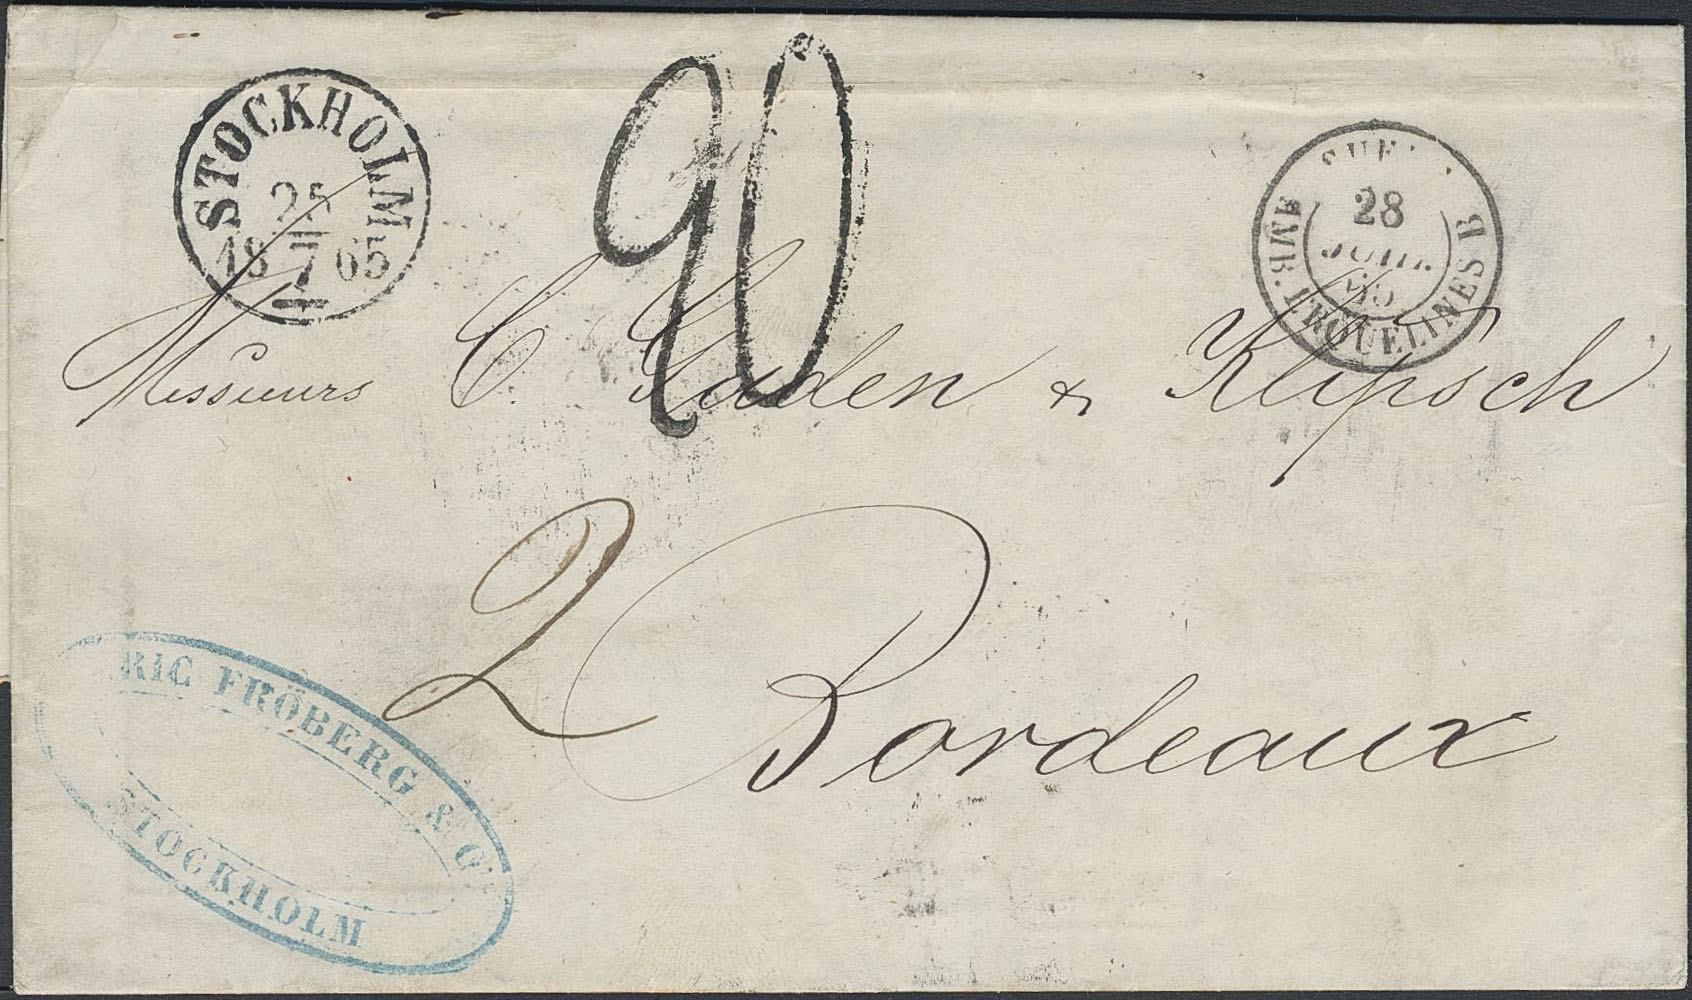 STOCKHOLM
25
18 7 65
90
28
JUIL.
65
AMB. ERQUELINES B
Messieurs C. Gaden & Klipsch
2
Bordeaux
RIC FRÖBERG & Co
STOCKHOLM